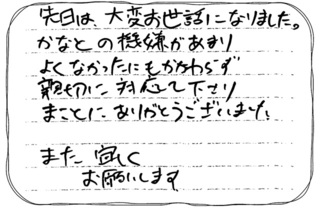 先日は、大変お世話になりました。
かなとの機嫌があまり
よくなかったにもかかわらず
親切に対応して下さり
まことにありがとうございました。
また宜しく
お願いします